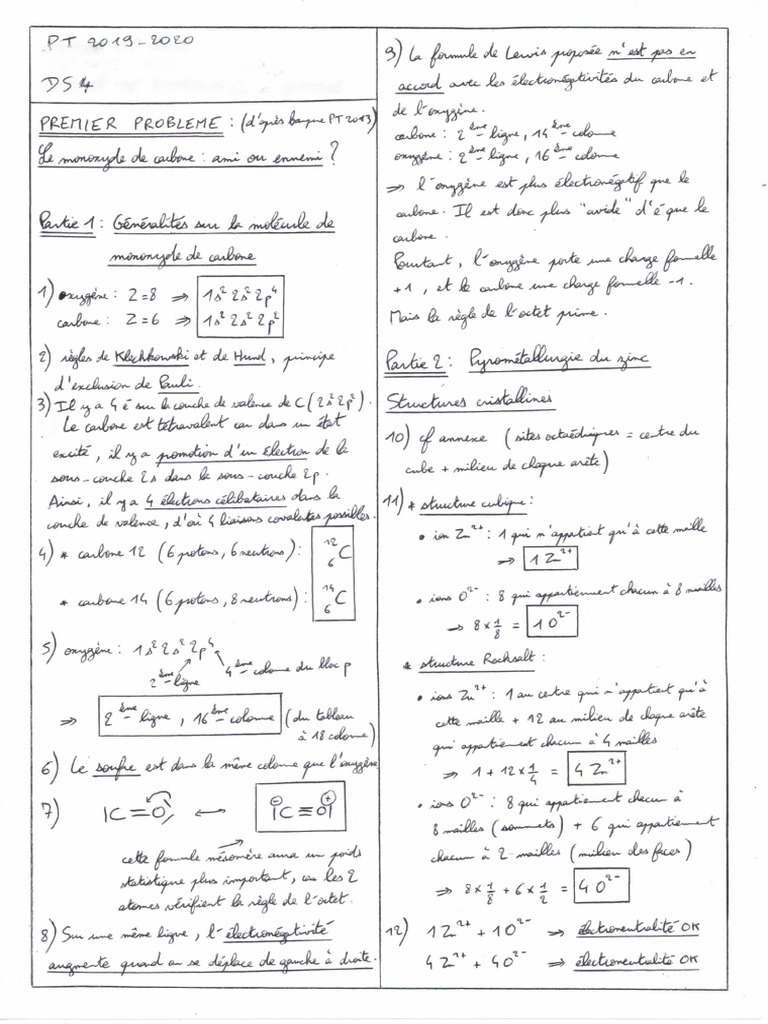 PT 2019-2020
DS 4
PREMIER PROBLEME : (d'après banque PT 2013)
Le monoxyde de carbone : ami ou ennemi ?
Partie 1 : Généralités sur la molécule de
monoxyde de carbone
1) oxygène : Z=8 ⇒ 1s² 2s² 2p⁴
carbone : Z=6 ⇒ 1s² 2s² 2p²
2) règles de Klechkowski et de Hund, principe
d'exclusion de Pauli.
3) Il y a 4 é sur la couche de valence de C (2s² 2p²).
Le carbone est tétravalent car dans un état
excité, il y a promotion d'un électron de la
sous-couche 2s dans la sous-couche 2p.
Ainsi, il y a 4 électrons célibataires dans la
couche de valence, d'où 4 liaisons covalentes possibles.
4) * carbone 12 (6 protons, 6 neutrons) : ¹²₆C
* carbone 14 (6 protons, 8 neutrons) : ¹⁴₆C
5) oxygène : 1s² 2s² 2p⁴
2ème ligne 4ème colonne du bloc p
⇒ 2ème ligne, 16ème colonne (du tableau
à 18 colonne)
6) Le soufre est dans la même colonne que l'oxygène
7) |C=O ↔ |C≡O|
⊖ ⊕
cette formule mésomère aura un poids
statistique plus important, car les 2
atomes vérifient la règle de l'octet.
8) Sur une même ligne, l'électronégativité
augmente quand on se déplace de gauche à droite.
9) La formule de Lewis proposée n'est pas en
accord avec les électronégativités du carbone et
de l'oxygène.
carbone : 2ème ligne, 14ème colonne
oxygène : 2ème ligne, 16ème colonne
⇒ l'oxygène est plus électronégatif que le
carbone. Il est donc plus "avide" d'é que le
carbone.
Pourtant, l'oxygène porte une charge formelle
+1, et le carbone une charge formelle -1.
Mais la règle de l'octet prime.
Partie 2 : Pyrométallurgie du zinc
Structures cristallines
10) cf annexe (sites octaédriques = centre du
cube + milieu de chaque arête)
11) * structure cubique :
• ion Zn²⁺ : 1 qui n'appartient qu'à cette maille
⇒ 1 Zn²⁺
• ions O²⁻ : 8 qui appartiennent chacun à 8 mailles
⇒ 8 × 1/8 = 1 O²⁻
* structure Rocksalt :
• ions Zn²⁺ : 1 au centre qui n'appartient qu'à
cette maille + 12 au milieu de chaque arête
qui appartiennent chacun à 4 mailles
⇒ 1 + 12 × 1/4 = 4 Zn²⁺
• ions O²⁻ : 8 qui appartiennent chacun à
8 mailles (sommets) + 6 qui appartiennent
chacun à 2 mailles (milieu des faces)
⇒ 8 × 1/8 + 6 × 1/2 = 4 O²⁻
12) 1 Zn²⁺ + 1 O²⁻ ⇒ électroneutralité OK
4 Zn²⁺ + 4 O²⁻ ⇒ électroneutralité OK